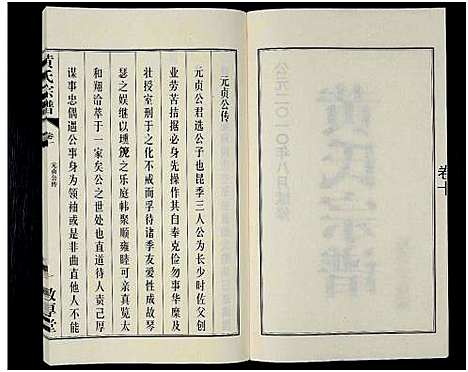 卷十
公元二〇一〇年八月续修
黄氏宗谱
元贞公传
元贞公君选公子也昆季三人公为长少时佐父创
业劳苦拮据必身先操作其自奉克俭勿事华靡及
壮授室刑于之化不戒而孚待诸季友爱性成故琴
瑟之娱继以埙篪之乐庭帏聚顺雍睦可亲真觉太
和翔洽萃于一家矣公之世处也直道待人责己厚
谋事忠偶遇公事身为领袖或是非曲直他人不能
黄氏宗谱
卷一
元贞公传
敦厚堂